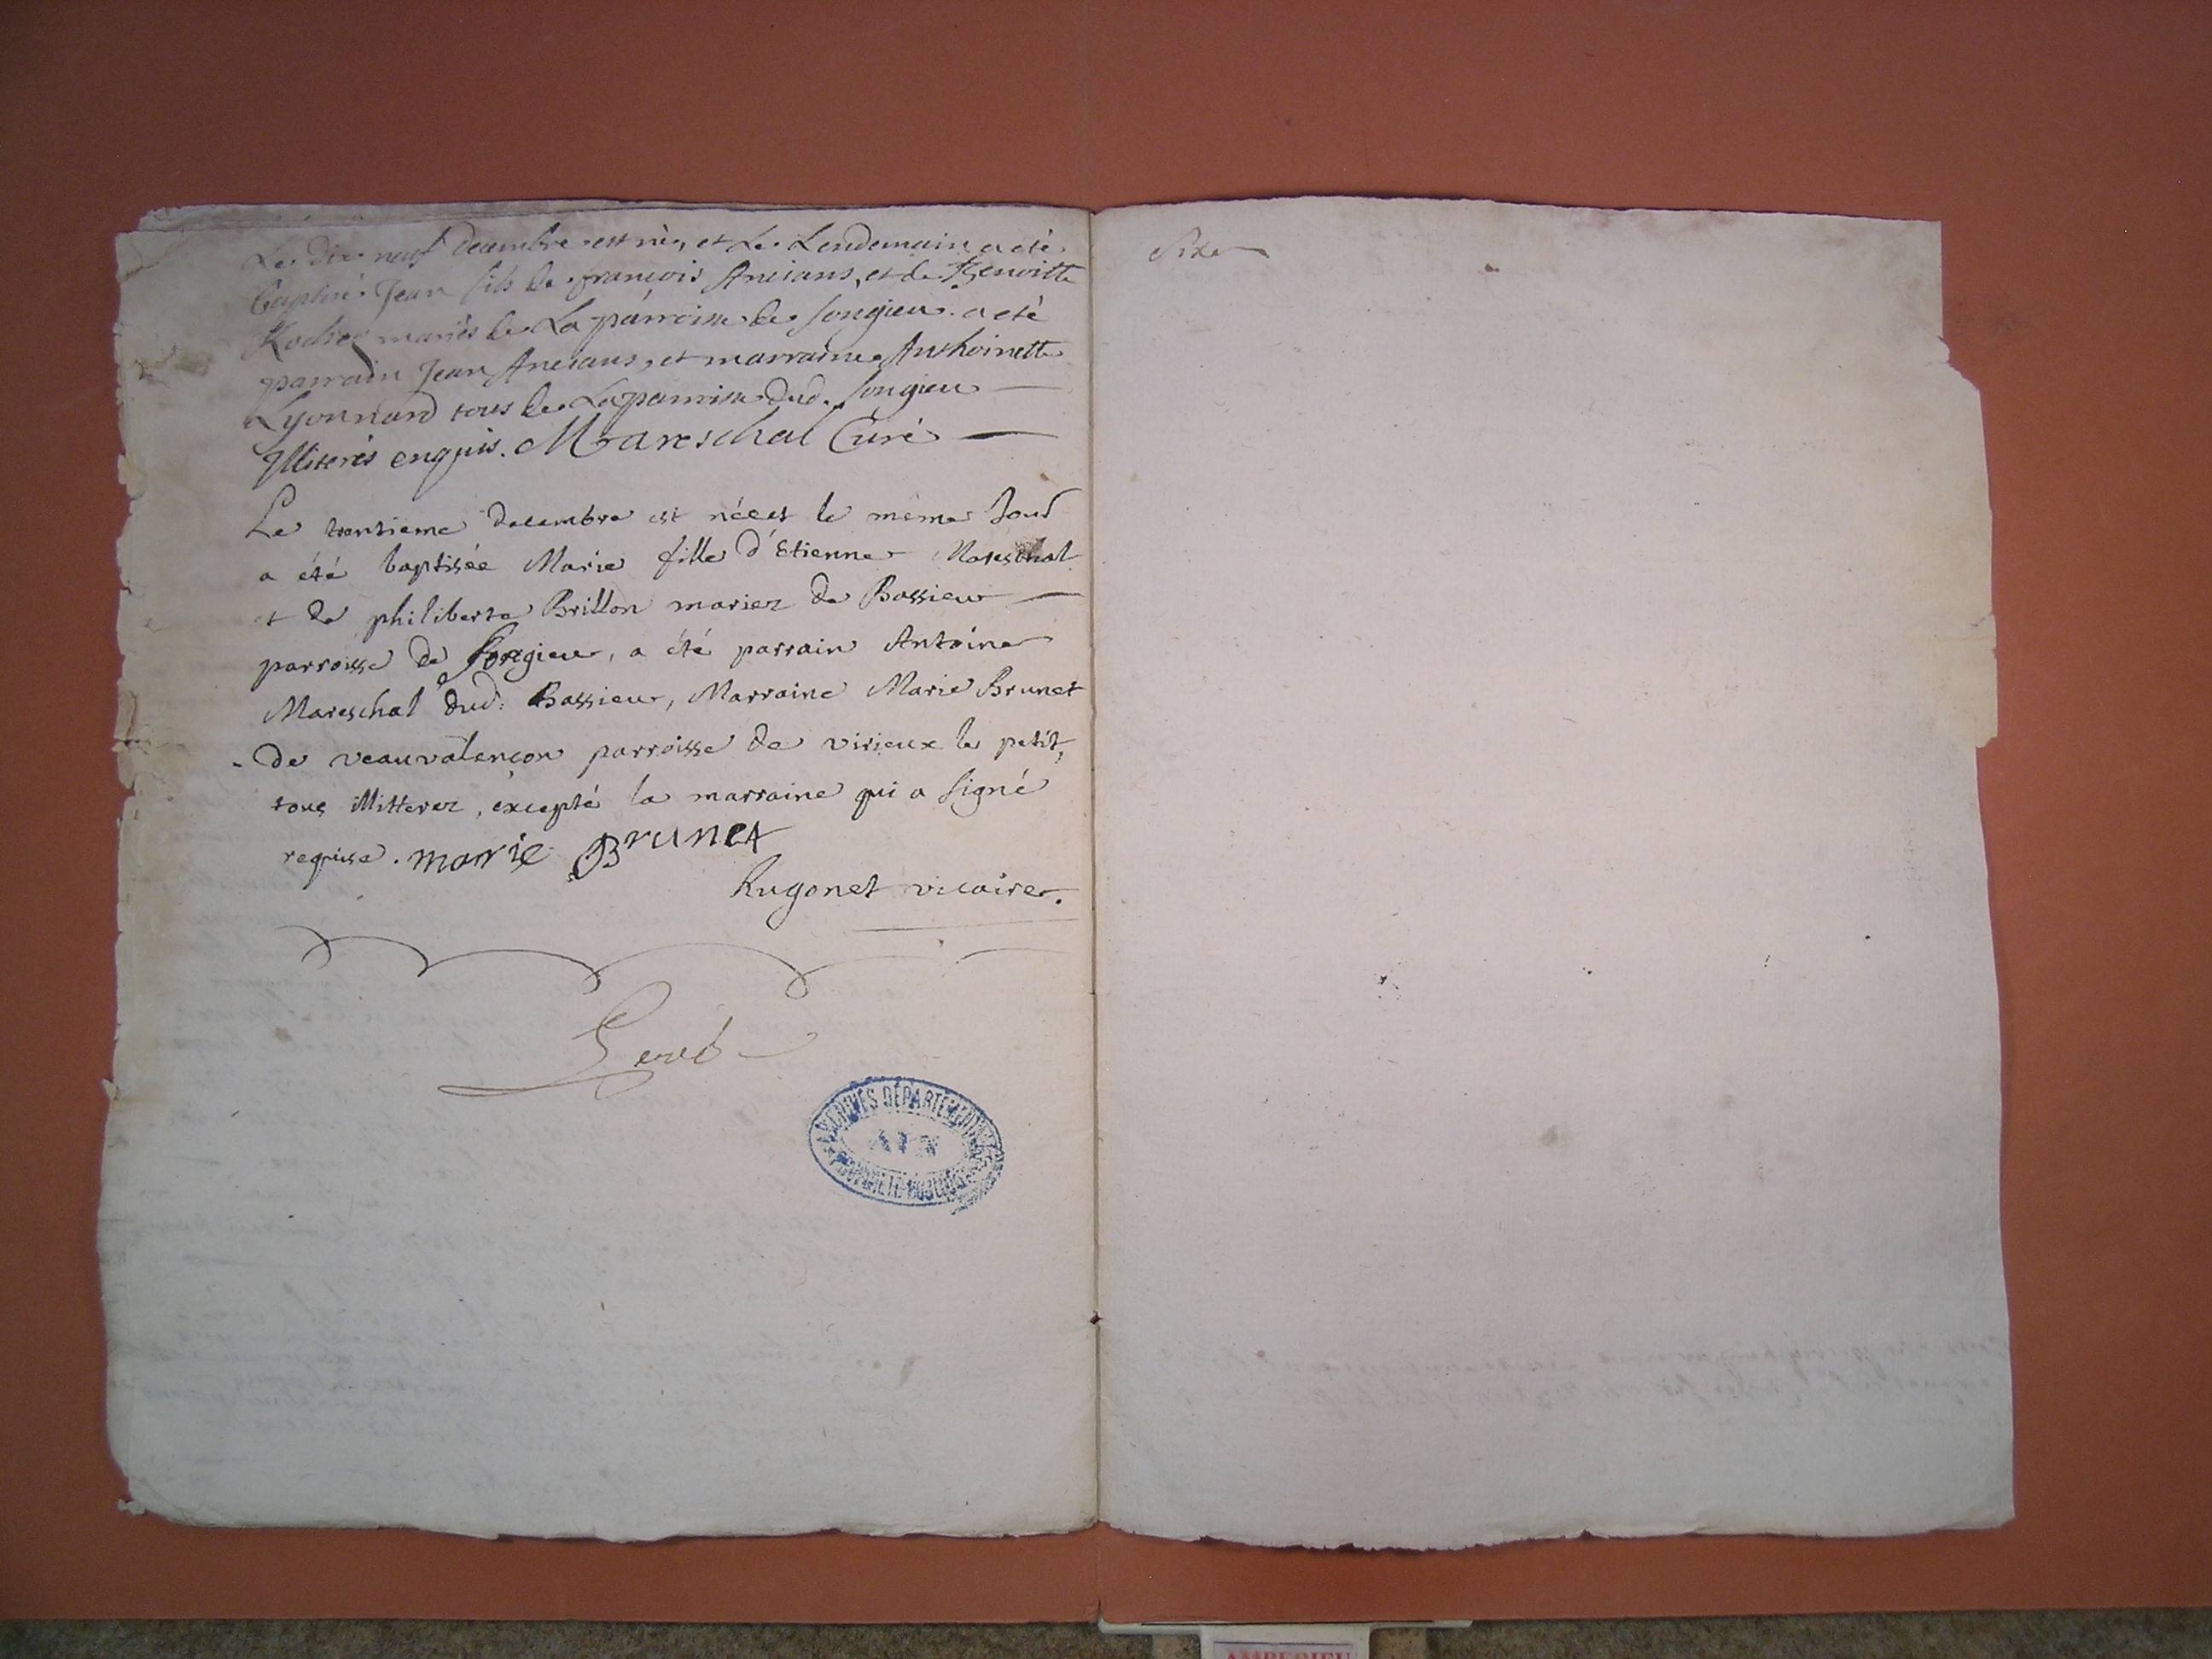 Le dix neuf decembre est né, et Le Lendemain a eté
baptisé Jean fils de françois Ancians, et de Benoitte
mariés de La parroisse de songieu. a eté
parrain Jean Ancians, et marraine Anthoinette
Lyonnard tous de La parroisse dud. songieu
Illiterés enquis. Mareschal Curé
Le trentieme decembre est néeet le même Jour
a été baptisée Marie fille d'Etienne Mareschal
et de philiberte Brillon mariez de Bassieu
parroisse de Songieu, a été parrain Antoine
Mareschal dud: Bassieu, Marraine Marie Brunet
de veauvalençon parroisse de virieux le petit,
tous illitterez, excepté la marraine qui a signé
requise. marie Brunet
Rugonet vicaire.
ARCHIVES DÉPARTEMENTALES
AIN
Sixe